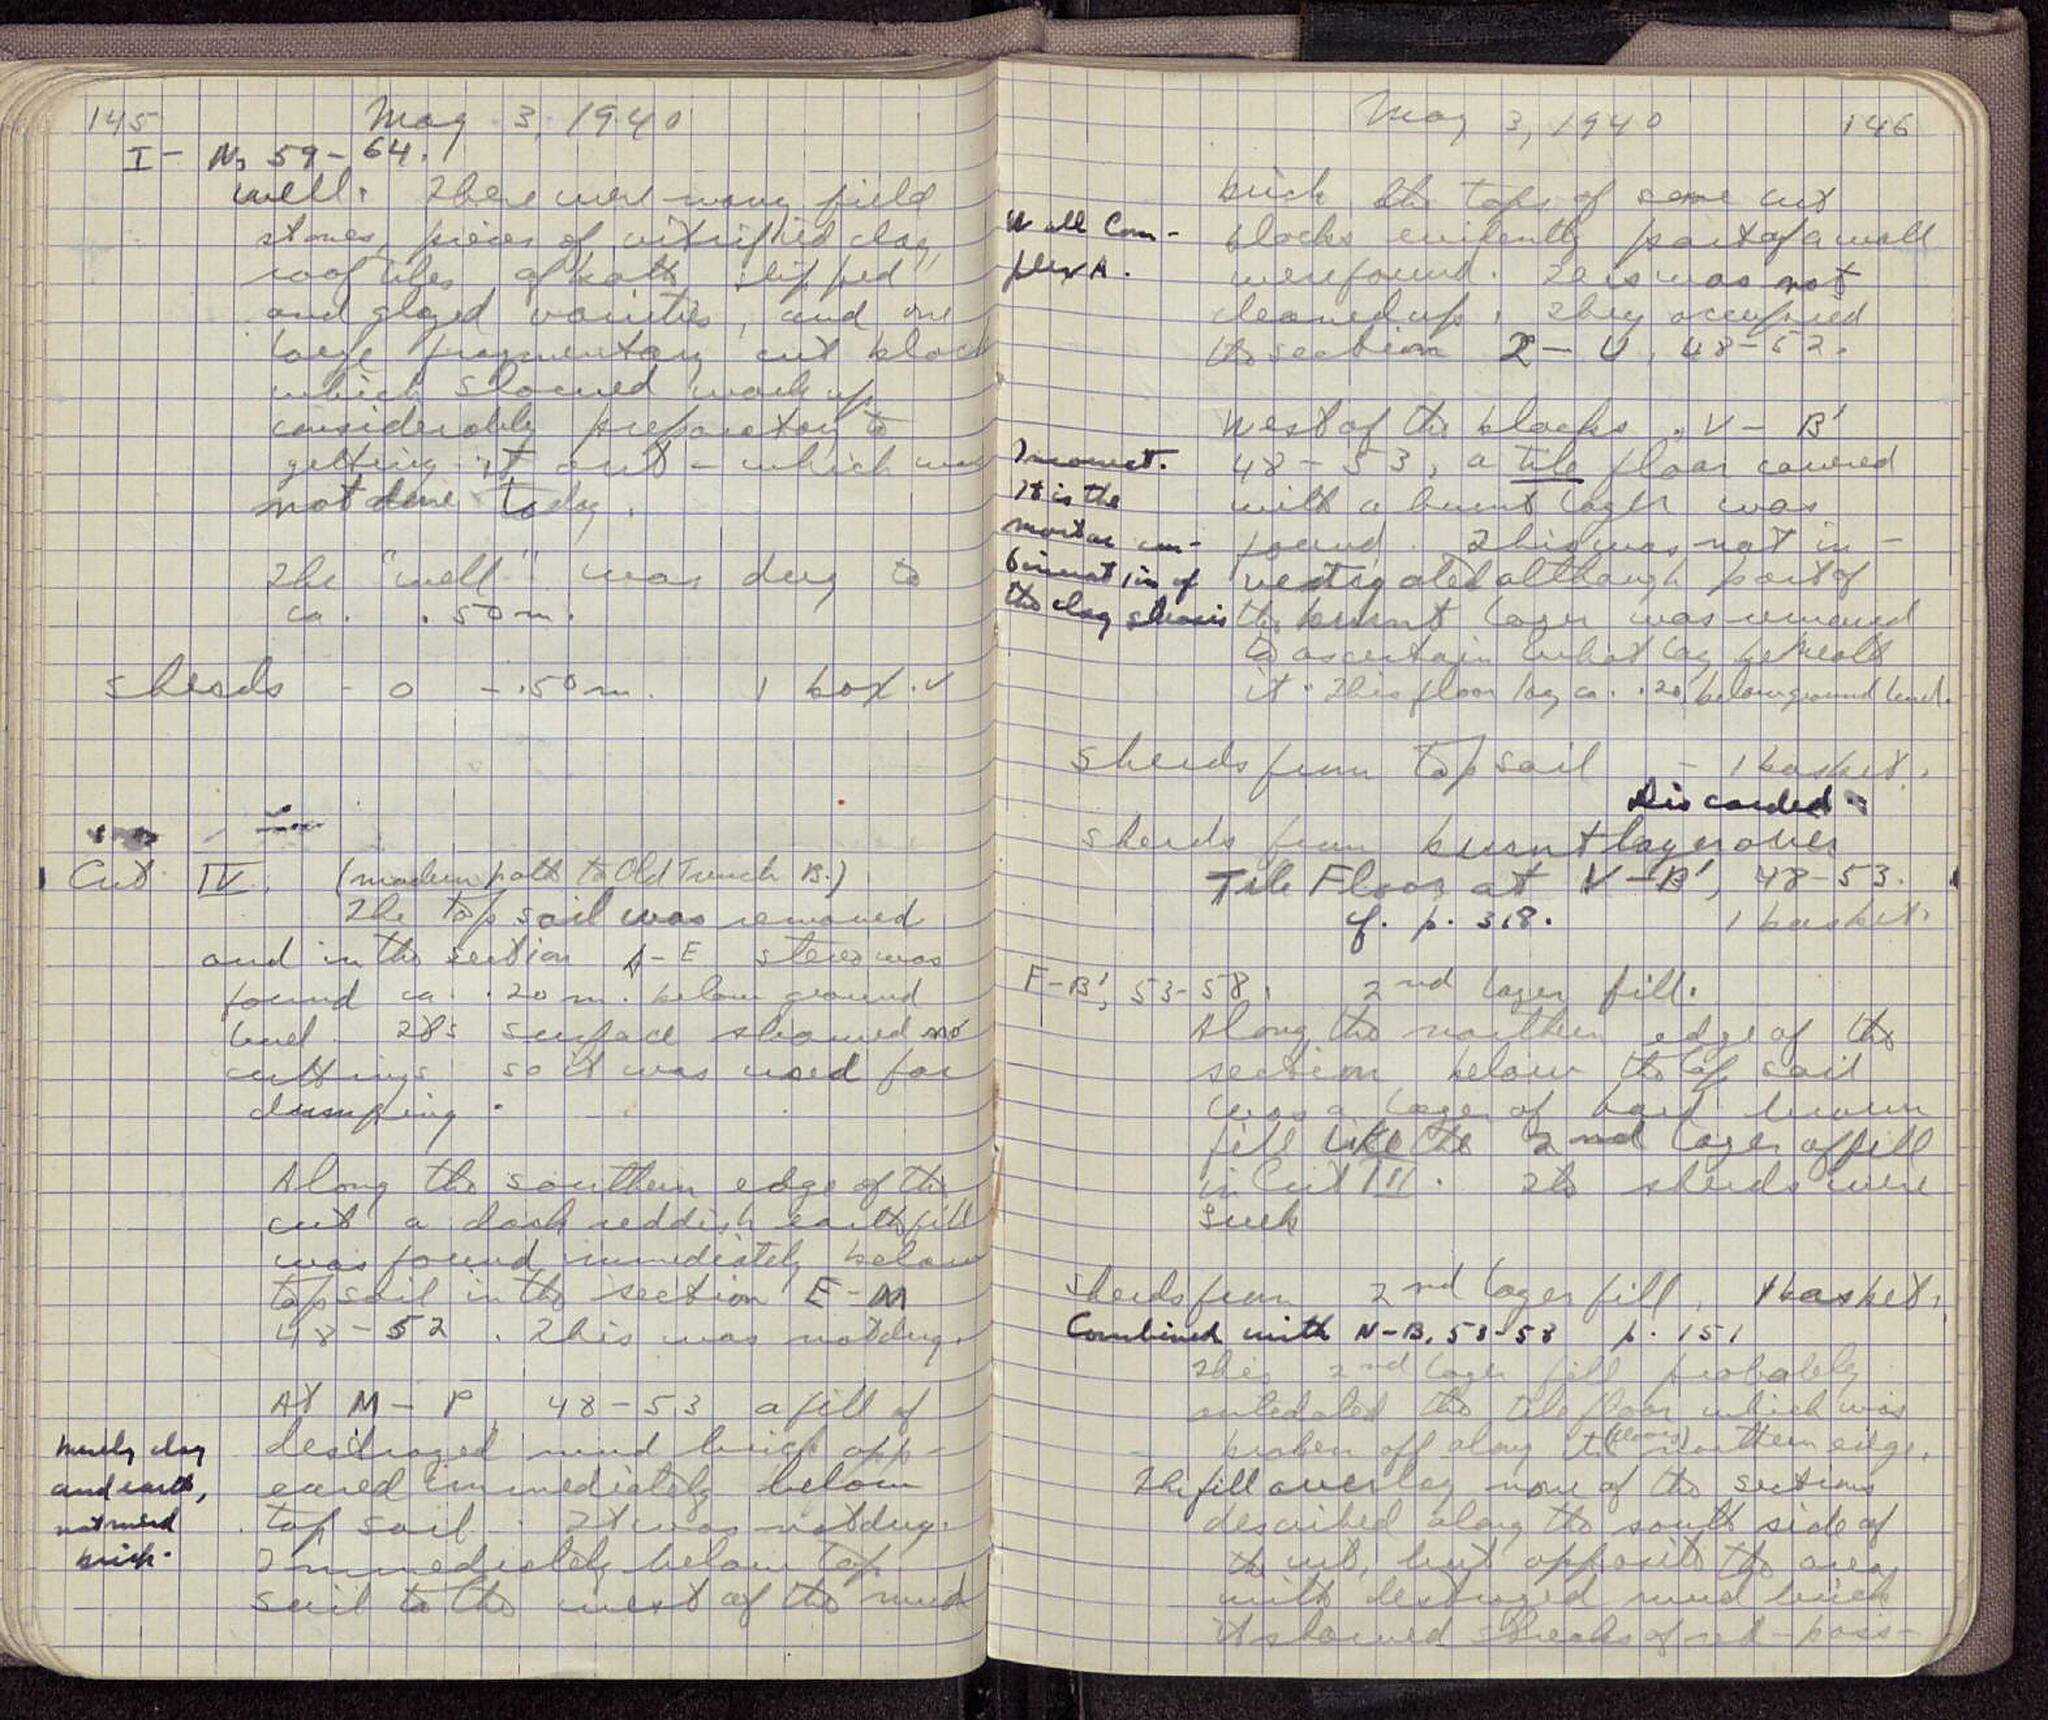 145 May 3, 1940
I - N, 59-64.
well. There were many field
stones, pieces of vitrified clay,
roof tiles of both slipped
and glazed varieties, and one
large fragmentary cut block
which slowed work up
considerably preparatory to
getting it out - which was
not done today.
The "well" was dug to
ca. .50 m.
sherds - 0 - .50 m. 1 box. v
Cut IV. (modern path to Old Trench B.)
The top soil was removed
and in the section A-E stereo was
found ca. .20 m. below ground
level. Its surface showed no
cuttings so it was used for
dumping.
Along the southern edge of the
cut a dark reddish earth fill
was found immediately below
top soil in the section E-M
48-52. This was not dug.
At M-P, 48-53 a fill of
destroyed mud brick app-
eared immediately below
top soil. It was not dug.
Immediately below top
soil to the west of the mud
Merely clay
and earth,
not mud
brick.
May 3, 1940 146
brick the tops of some cut
blocks evidently part of a wall
were found. This was not
cleaned up. They occupied
the section - U, 48-52.
Wall Com-
plex A.
West of the blocks, V - B'
48-53, a tile floor covered
with a burnt layer was
found. This was not in-
vestigated although part of
the burnt layer was removed
to ascertain what lay beneath
it. This floor lay ca. .20 below ground level.
Incorrect.
It is the
mortar
of
the clay
Sherds from top soil - 1 basket.
Discarded
Sherds from burnt layer over
Tile Floor at V-B', 48-53.
cf. p. 318. 1 basket.
F-B', 53-58. 2nd layer fill.
Along the northern edge of the
section below the top soil
was a layer of hard brown
fill like the 2nd layer of fill
in Cut III. The sherds were
such
Sherds from 2nd layer fill. 1 basket.
Combined with N-B, 53-58 p. 151
This 2nd layer fill probably
antedated the tile floor which was
broken off along its (floor's) northern edge.
The fill overlay none of the sections
described along the south side of
the cut, but opposite the area
with destroyed mud brick
it showed streaks of red - poss-